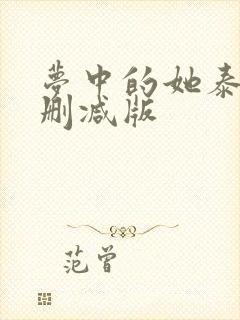 夢中的她泰
删减版
范曾